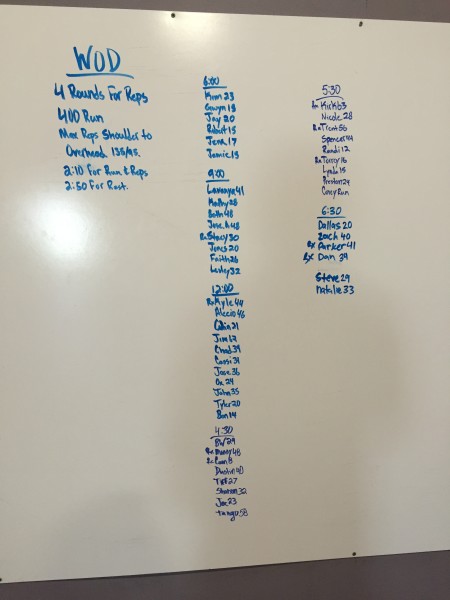 WOD
4 Rounds For Reps
400 Run
Max Reps Shoulder to
Overhead 135/95.
2:10 For Run & Reps
2:50 For Rest.
6:00
Kim 23
Gwyn 18
Jay 20
Robert 15
Jenn 17
Jamie 13
9:00
41
Mathy 28
Beth 48
Jose.A 48
Rx Stacy 30
Jones 20
Faith 26
Lesley 32
12:00
Rx Kyle 44
Alecio 46
Colin 21
Jim 17
Chad 39
Cassi 31
Jose 36
Ox 24
John 35
Tyler 20
Ben 14
4:30
BW 29
Rx Manny 48
Rx
Dustin 40
Tiff 27
Sharon 32
Joe 23
58
5:30
Rx Kirk 63
Nicole 28
Rx Trent 56
Spencer 44
Randi 12
Rx Terry 16
Lynda 15
Preston 24
Corey Run
6:30
Dallas 20
Zach 40
Rx Parker 41
Rx Dan 39
Steve 29
Natalie 33